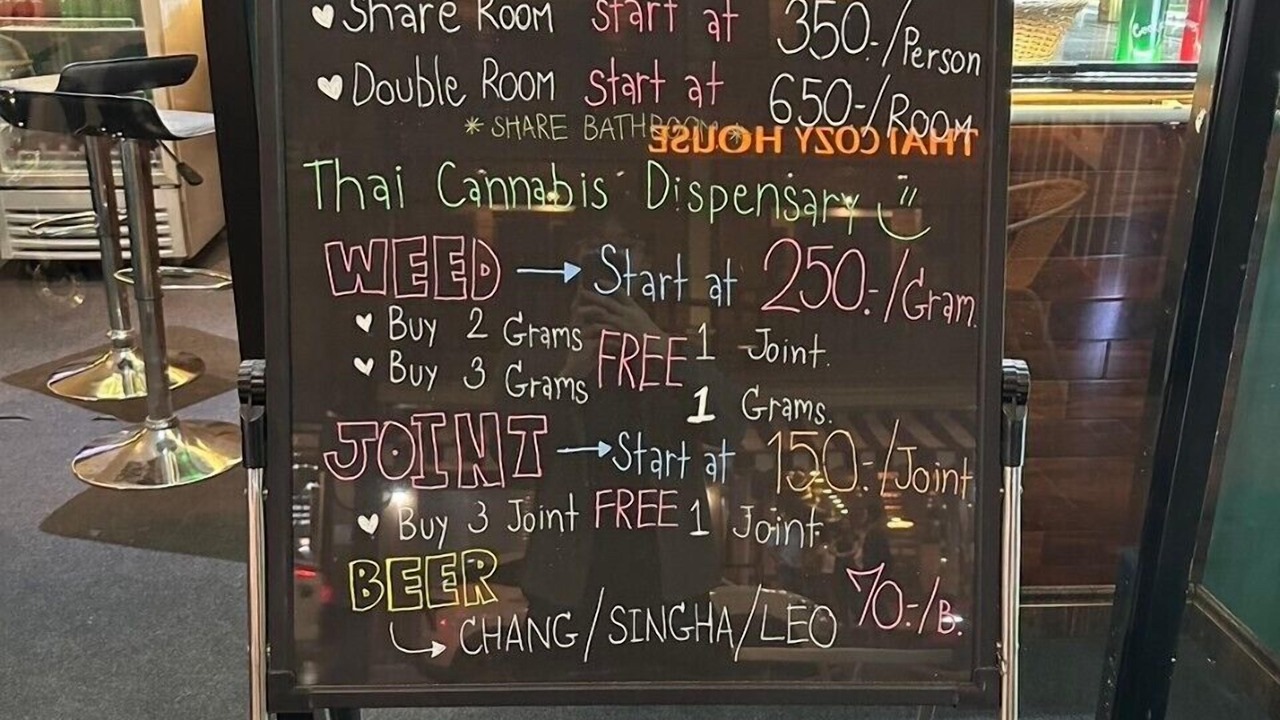 ♥ Share Room start at 350.-/Person
♥ Double Room start at 650-/Room
* SHARE BATHROOM *
THAI COZY HOUSE
Thai Cannabis Dispensary
WEED → Start at 250.-/Gram
♥ Buy 2 Grams FREE 1 Joint.
♥ Buy 3 Grams FREE 1 Grams.
JOINT → Start at 150.-/Joint
♥ Buy 3 Joint FREE 1 Joint.
BEER
CHANG/SINGHA/LEO 70.-/B.